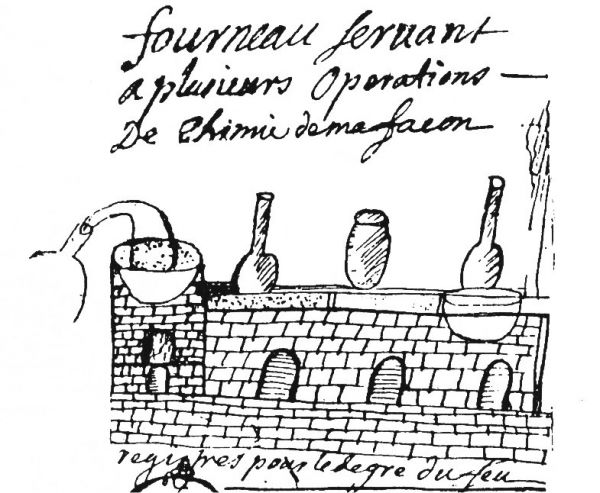 fourneau servant
a plusieurs Operations
De Chimie de ma facon
registres pour le degre du feu